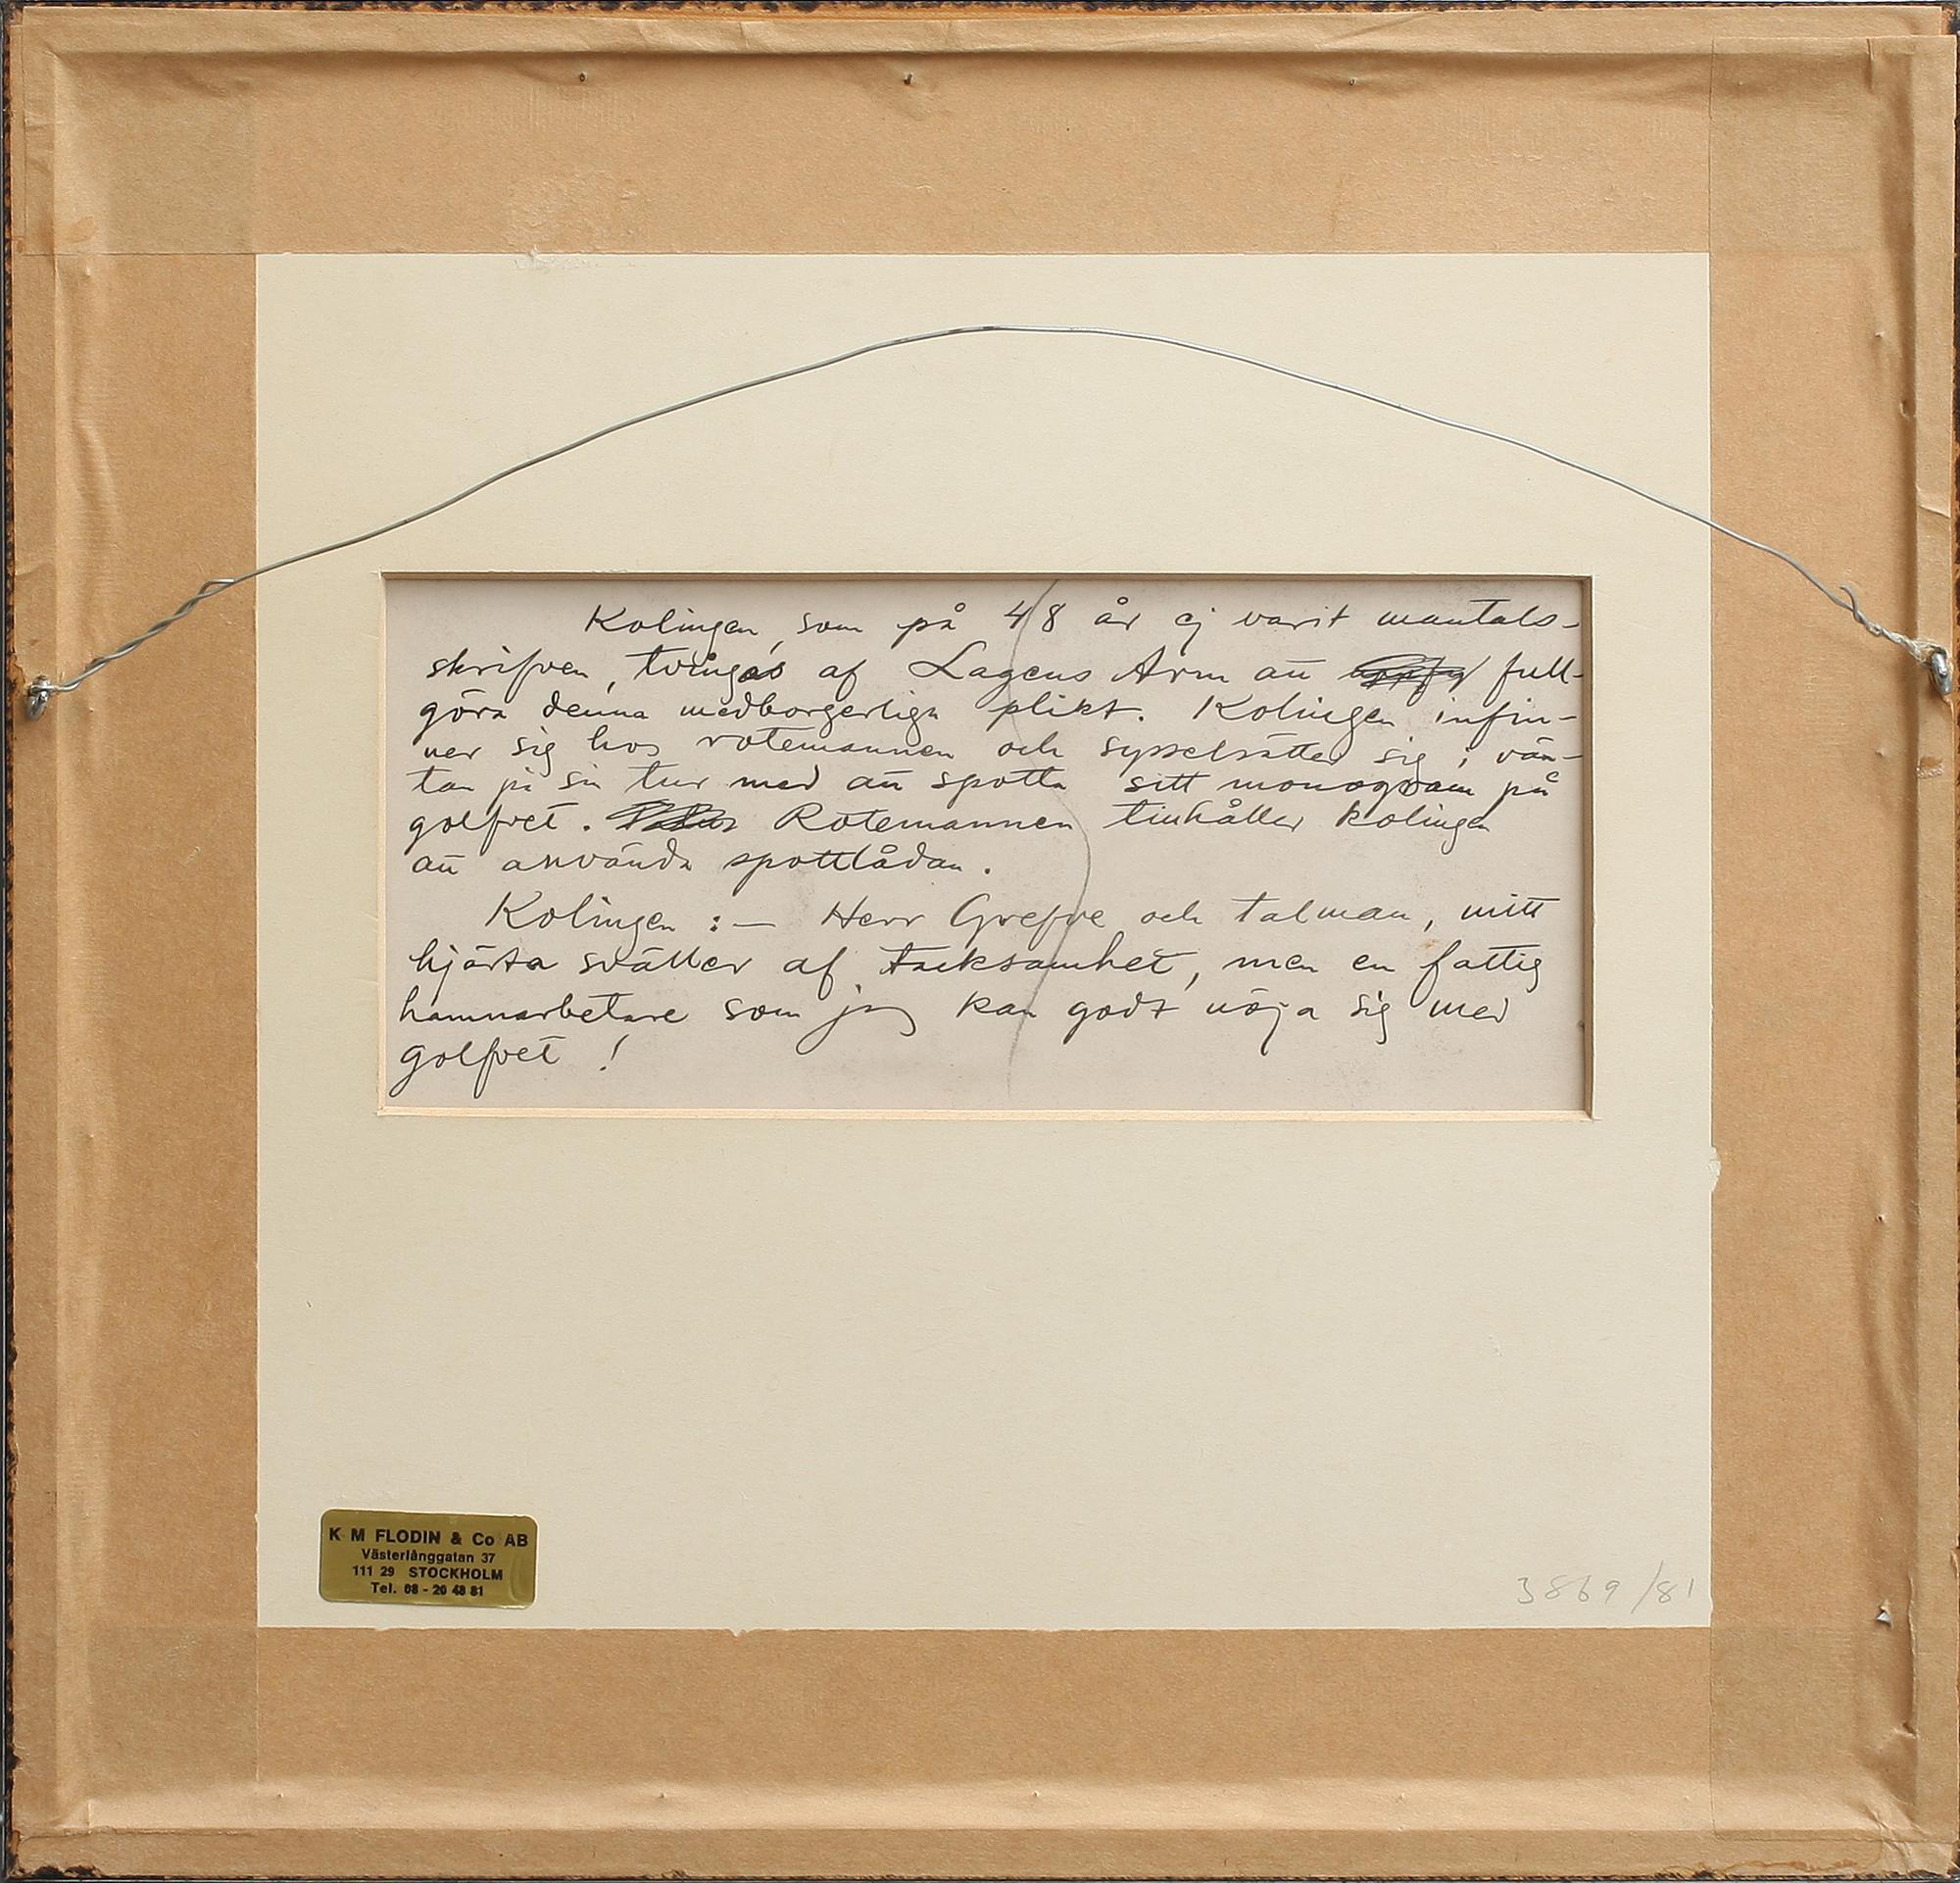 Kolingen, som på 48 år ej varit mantals-
skrifven, tvingas af Lagens Arm att full-
göra denna medborgerliga plikt. Kolingen infin-
ner sig hos rotemannen och sysselsätter sig i vän-
tan på sin tur med att spotta sitt monogram på
golfvet. Rotemannen tillhåller Kolingen
att använda spottlådan.
Kolingen :— Herr Grefve och talman, mitt
hjärta sväller af tacksamhet, men en fattig
hamnarbetare som jag kan godt nöja sig med
golfvet !
K M FLODIN & Co AB
Västerlånggatan 37
111 29 STOCKHOLM
Tel. 08 - 20 48 81
3869/81